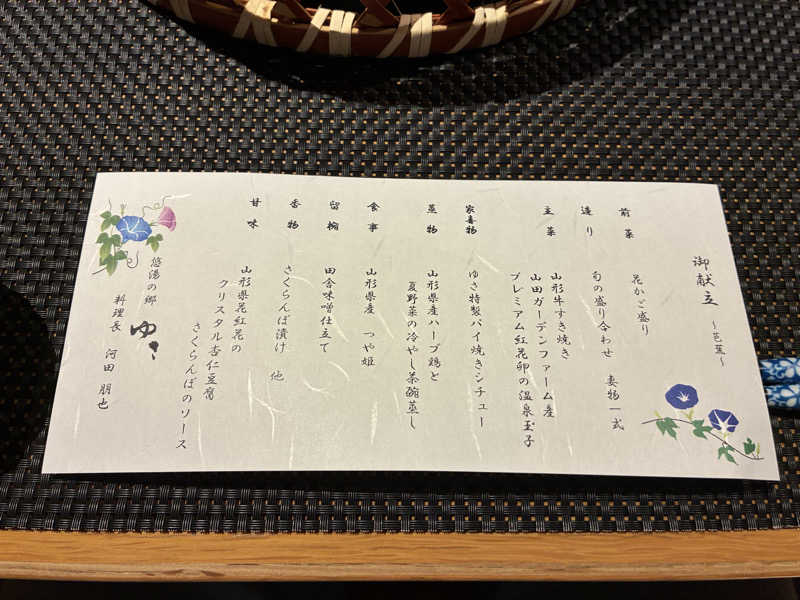 御献立 ～芭蕉～
前菜 花かご盛り
造り 旬の盛り合わせ 妻物一式
主菜 山形牛すき焼き
山田ガーデンファーム産
プレミアム紅花卵の温泉玉子
家喜物 ゆさ特製パイ焼きシチュー
蒸物 山形県産ハーブ鶏と
夏野菜の冷やし茶碗蒸し
食事 山形県産 つや姫
留椀 田舎味噌仕立て
香物 さくらんぼ漬け 他
甘味 山形県花紅花の
クリスタル杏仁豆腐
さくらんぼのソース
悠湯の郷 ゆさ
料理長 河田 朋也